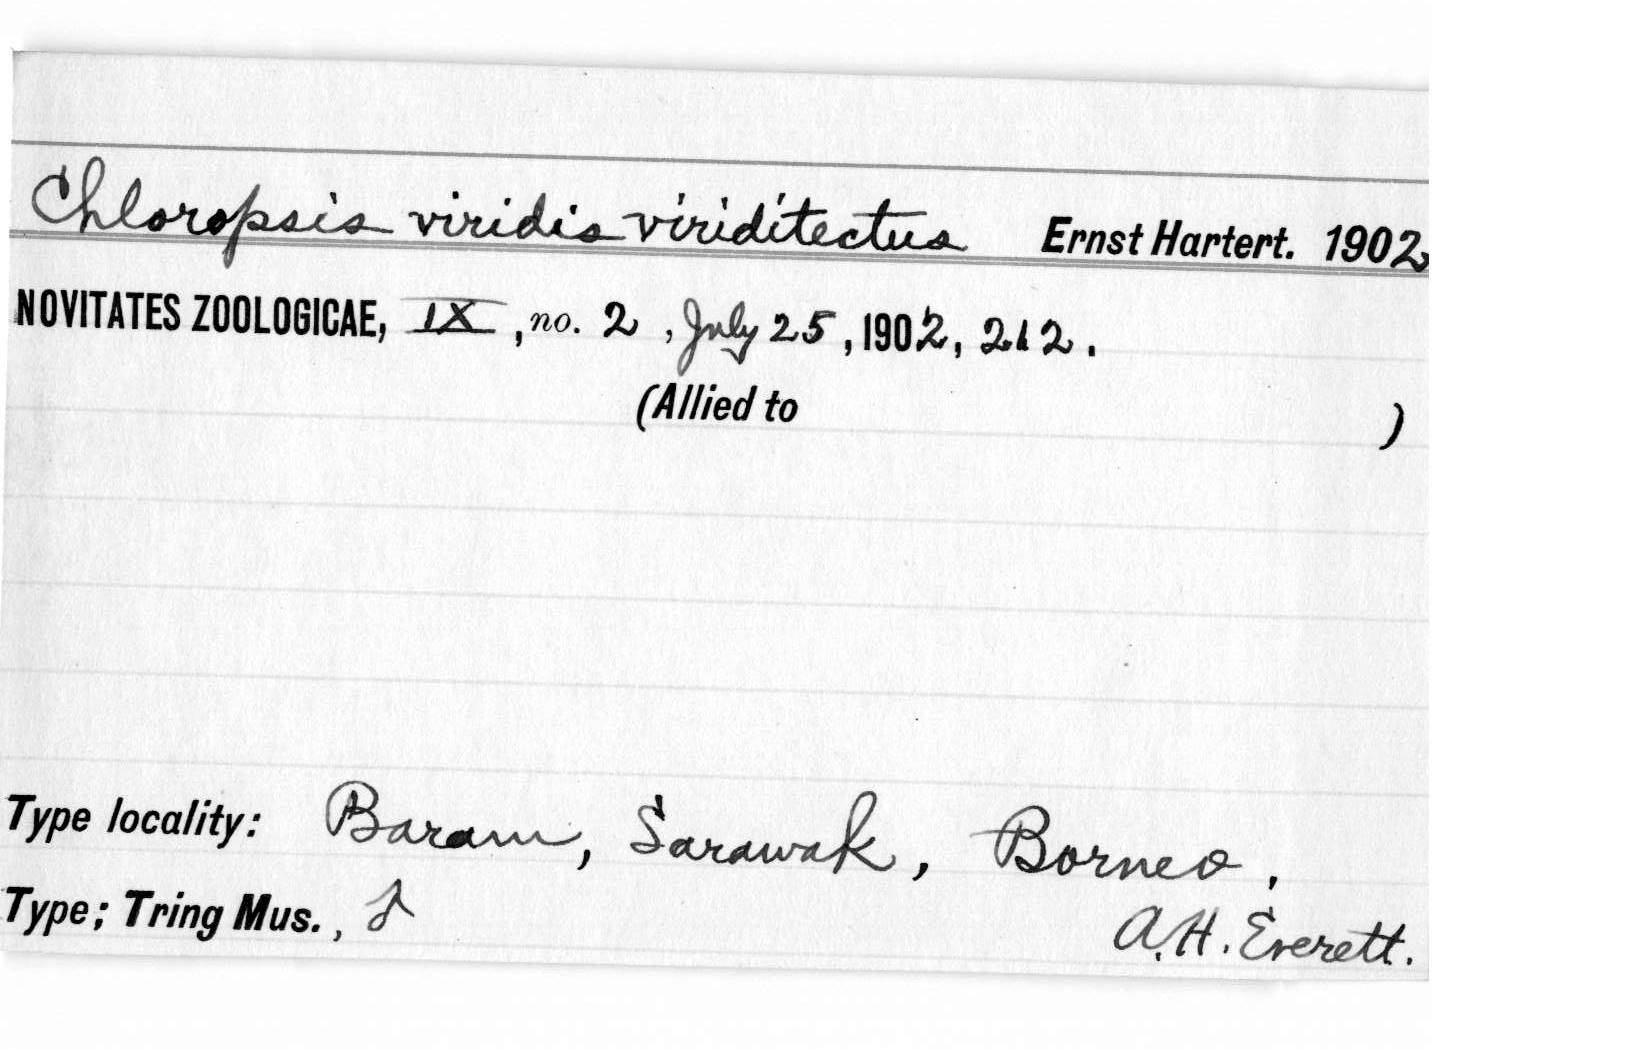 Chloropsis viridis viriditectus Ernst Hartert. 1902
NOVITATES ZOOLOGICAE, IX, no. 2, July 25, 1902, 212.
(Allied to )
Type locality: Baram, Sarawak, Borneo,
Type; Tring Mus., ♂
A.H. Everett.